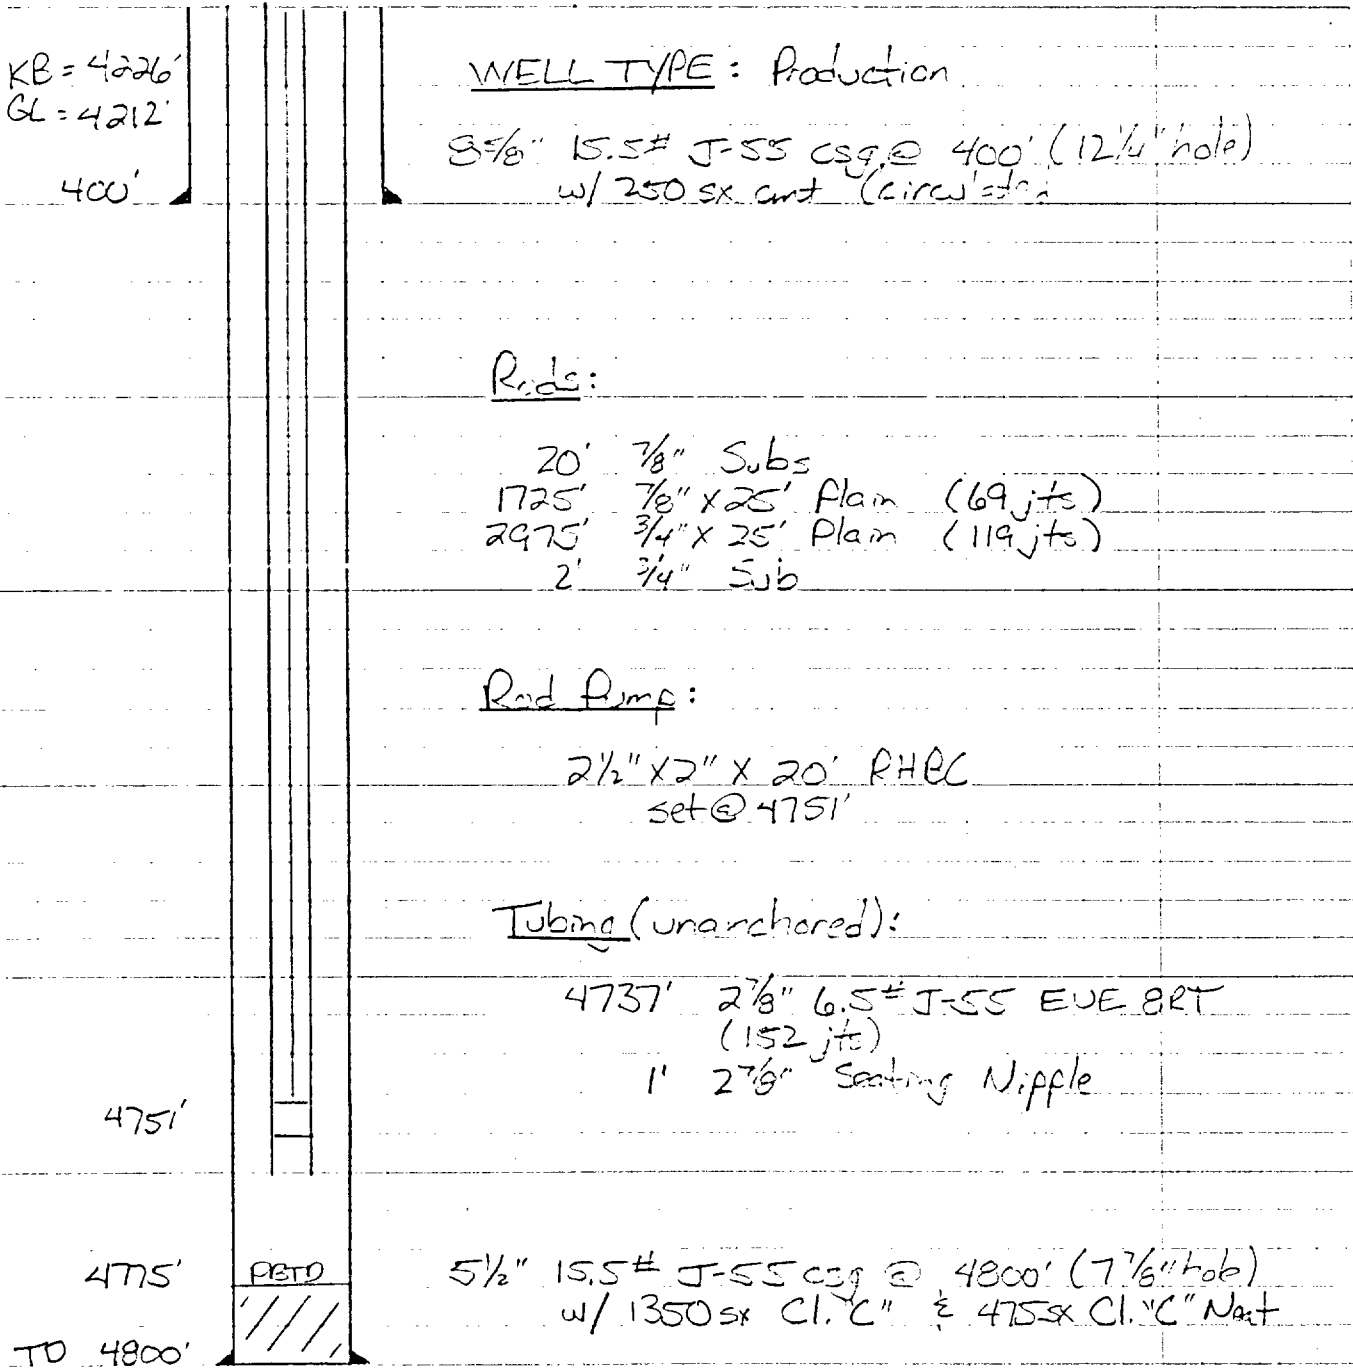 KB = 4226'
GL = 4212'
WELL TYPE : Production
8 5/8" 15.5# J-55 csg @ 400' (12 1/4" hole)
400'
w/ 250 sx cmt (circulated
Rods:
20' 7/8" Subs
1725' 7/8" x 25' Plain (69 jts)
2975' 3/4" x 25' Plain (119 jts)
2' 3/4" Sub
Rod Pump:
2 1/2" x 2" x 20' RHBC
set @ 4751'
Tubing (unanchored):
4737' 2 7/8" 6.5# J-55 EUE 8RT
(152 jts)
1' 2 7/8" Seating Nipple
4751'
4775' PBTD
5 1/2" 15.5# J-55 csg @ 4800' (7 7/8" hole)
w/ 1350 sx Cl. "C" & 475 sx Cl. "C" Neat
TD 4800'